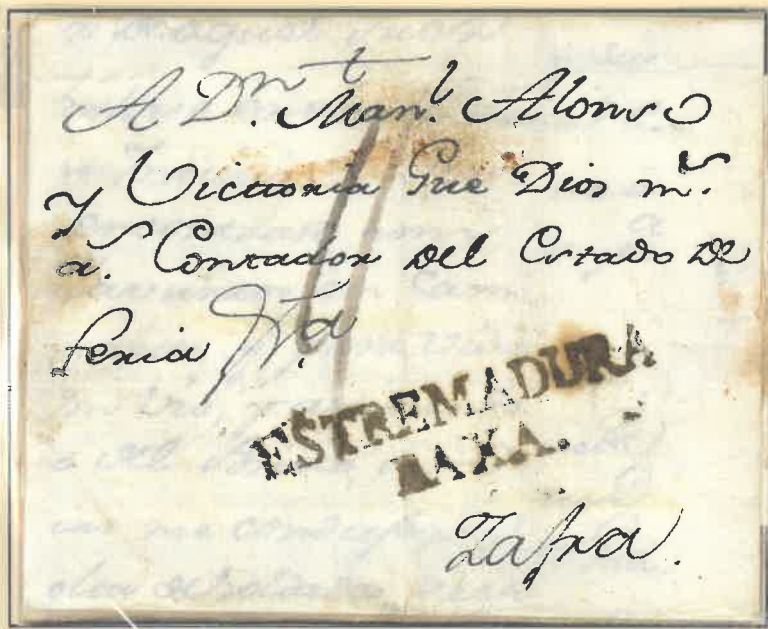 A Dn. Manl. Alonso
y Victtoria Gue Dios ms.
as. Contador del Estado de
feria
ESTREMADURA
BAXA.
Zafra.